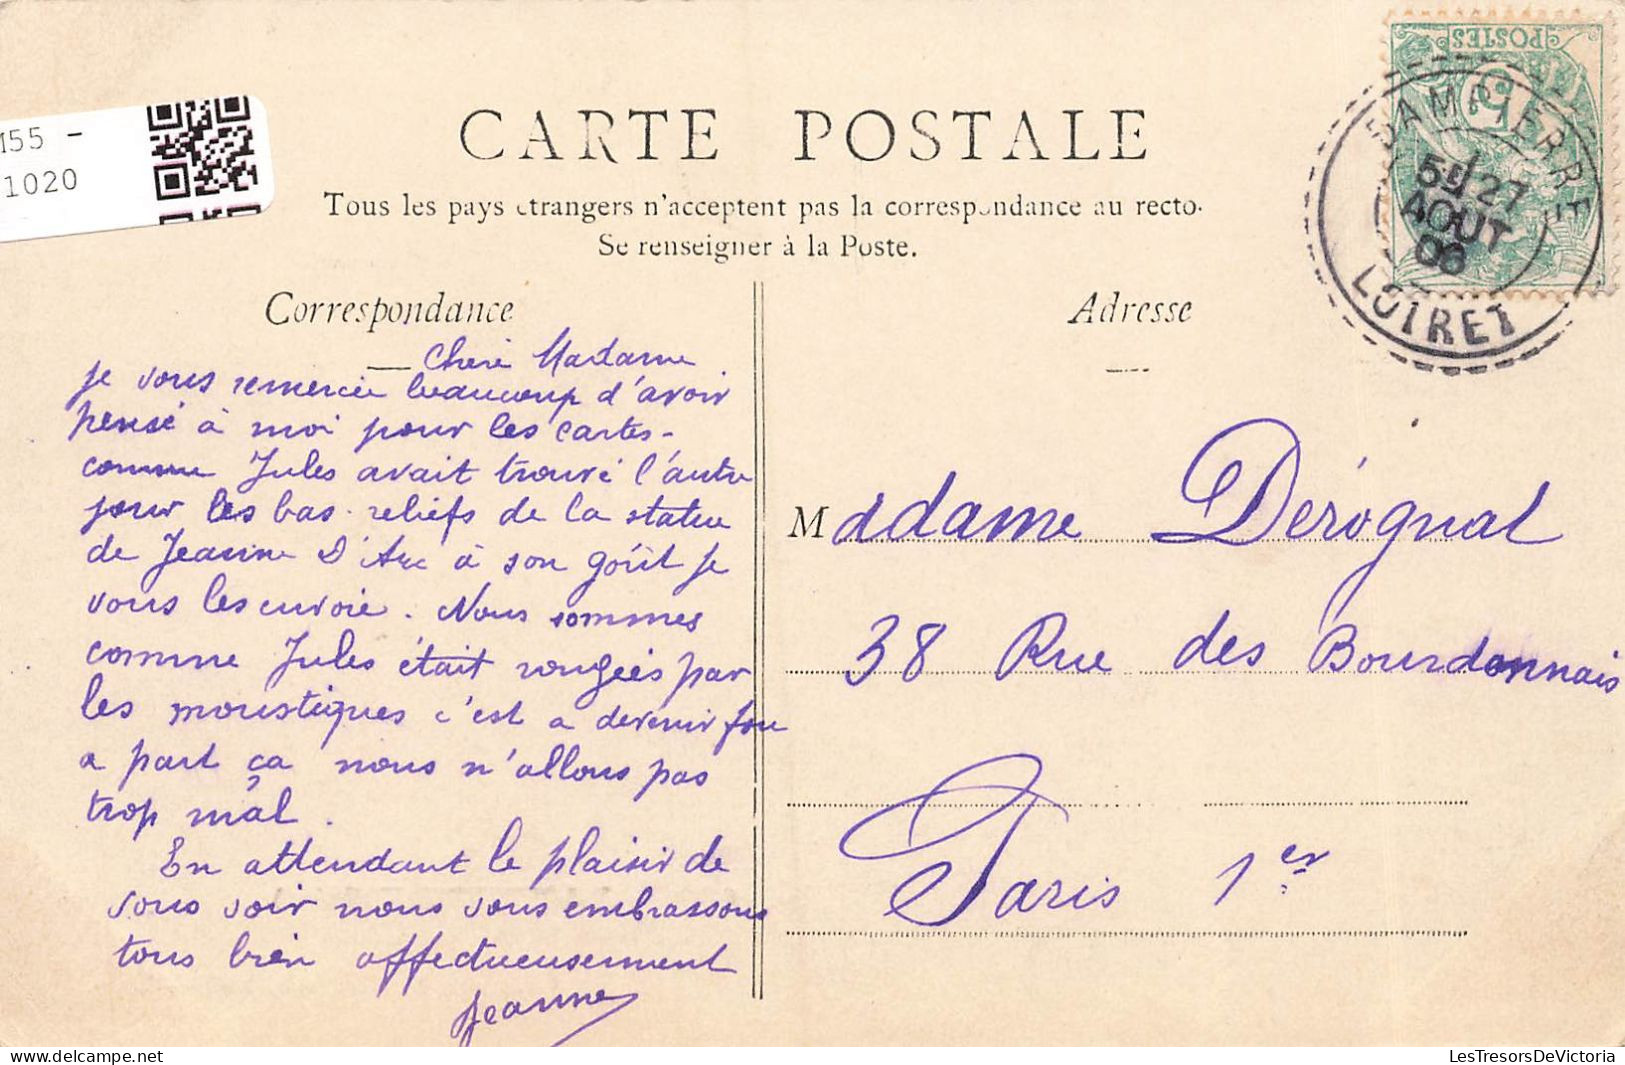 M55 -
1020
CARTE POSTALE
Tous les pays étrangers n'acceptent pas la correspondance au recto.
Se renseigner à la Poste.
Correspondance
Adresse
POSTES
5
DAMPIERRE
27
AOUT
06
LOIRET
Chère Madame
je vous remercie beaucoup d'avoir
pensé à moi pour les cartes-
comme Jules avait trouvé l'autre
pour les bas-reliefs de la statue
de Jeanne D'Arc à son goût je
vous les envoie. Nous sommes
comme Jules était rongées par
les moustiques c'est a devenir fou
a part ça nous n'allons pas
trop mal.
En attendant le plaisir de
vous voir nous vous embrassons
tous bien affectueusement
Jeanne
Madame Dérognat
38 Rue des Bourdonnais
Paris 1er
LesTresorsDeVictoria